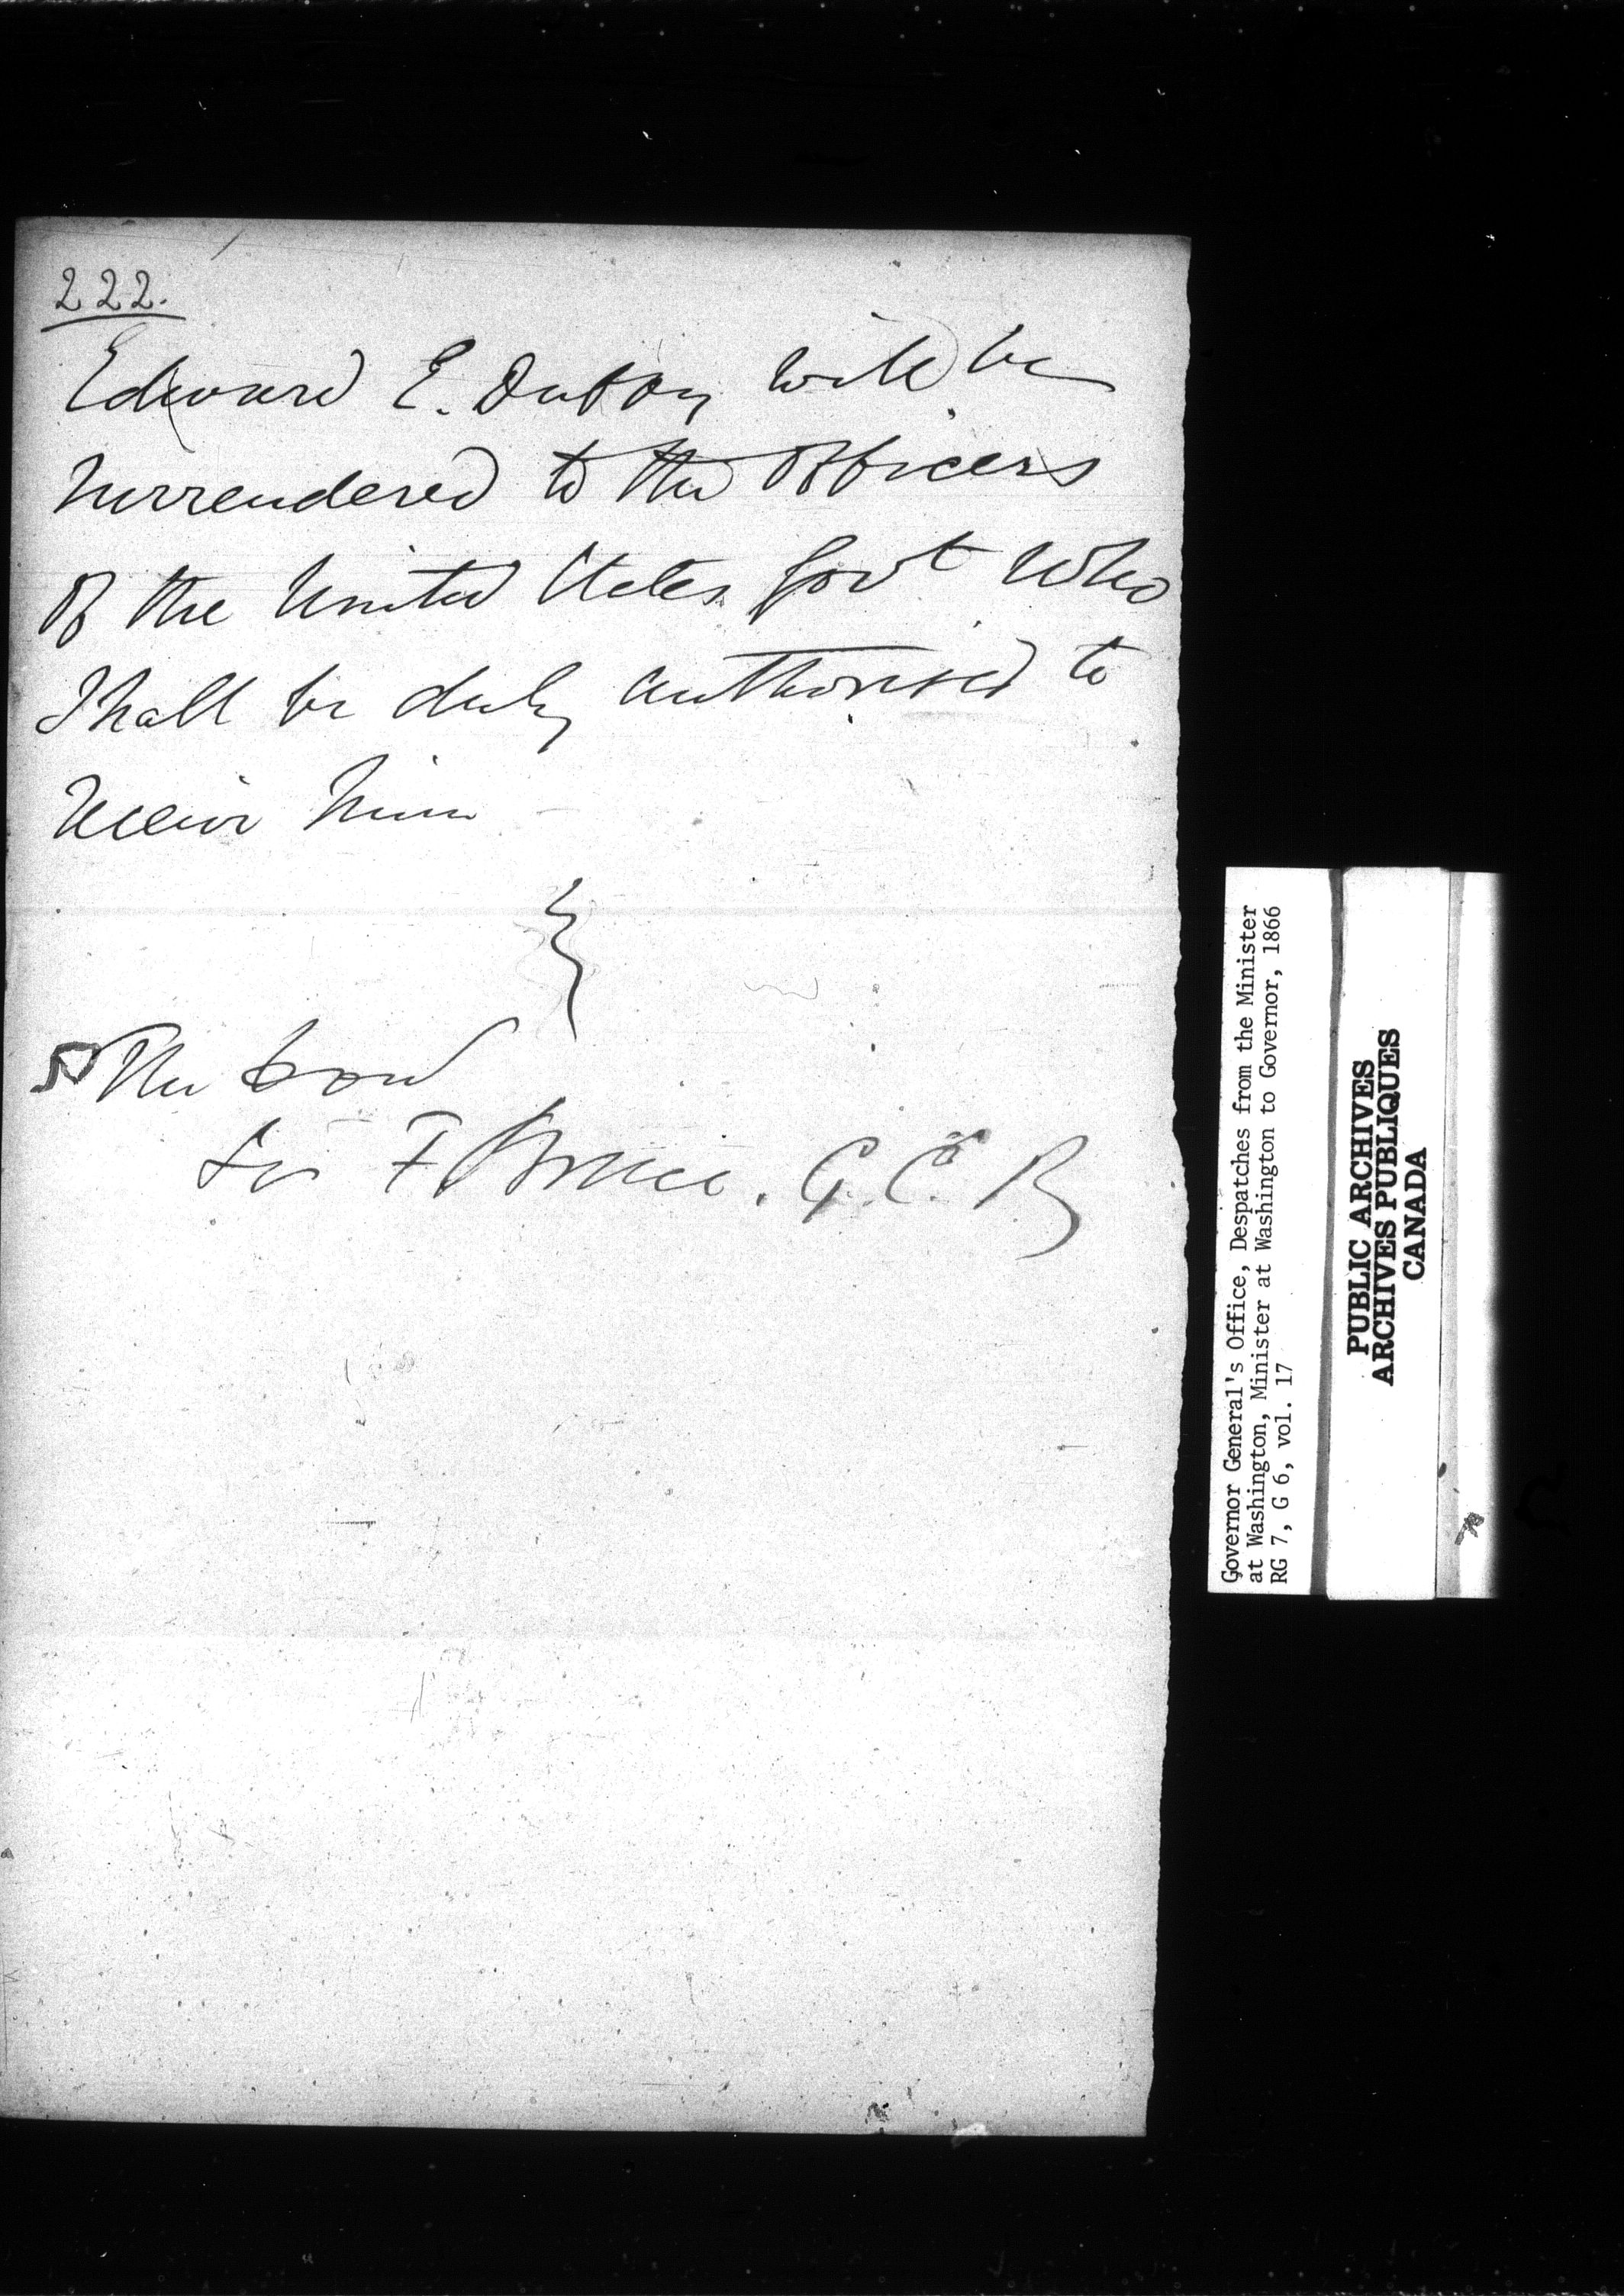 222.
Edward E. will be
surrendered to the Officers
of the United States Govt who
Shall be duly authorised to
receive him
The Hon
Sir F Bruce. G.C.B
Governor General's Office, Despatches from the Minister
at Washington, Minister at Washington to Governor, 1866
RG 7, G 6, vol. 17
PUBLIC ARCHIVES
ARCHIVES PUBLIQUES
CANADA